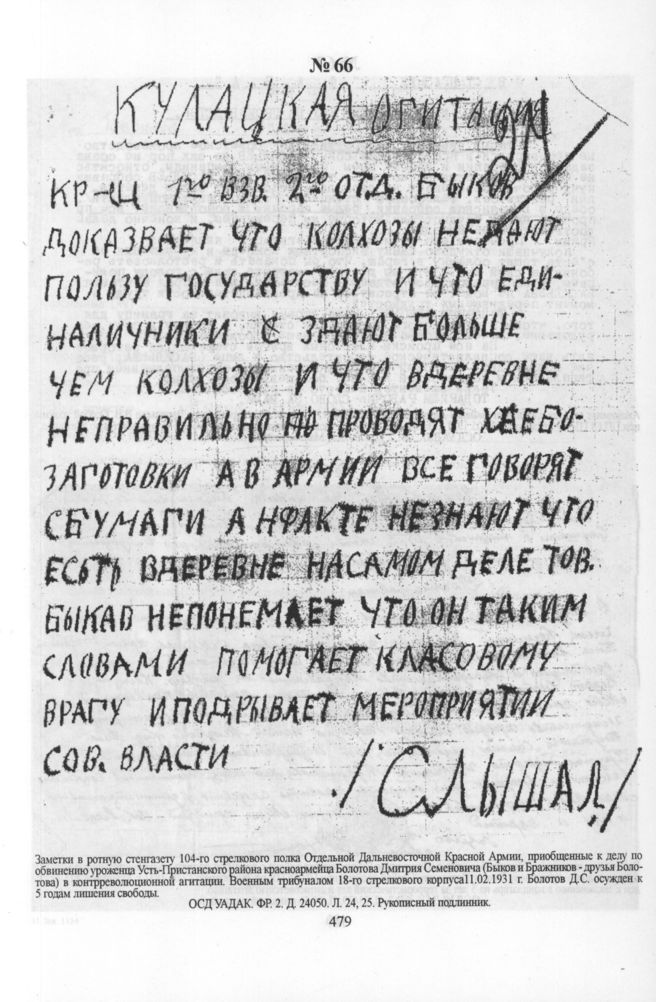 № 66
КУЛАЦКАЯ ОГИТАЦИЯ
КР-Ц 1го ВЗВ. 2го ОТД. БЫКОВ
ДОКАЗВАЕТ ЧТО КОЛХОЗЫ НЕДАЮТ
ПОЛЬЗУ ГОСУДАРСТВУ И ЧТО ЕДИ-
НАЛИЧНИКИ С ЗДАЮТ БОЛЬШЕ
ЧЕМ КОЛХОЗЫ И ЧТО ВДЕРЕВНЕ
НЕПРАВИЛЬНО ПРОВОДЯТ ХЛЕБО-
ЗАГОТОВКИ А В АРМИИ ВСЕ ГОВОРЯТ
СБУМАГИ А НФАКТЕ НЕЗНАЮТ ЧТО
ЕСТЬ ВДЕРЕВНЕ НАСАМОМ ДЕЛЕ ТОВ.
БЫКАВ НЕПОНЕМАЕТ ЧТО ОН ТАКИМ
СЛОВАМИ ПОМОГАЕТ КЛАСОВОМУ
ВРАГУ И ПОДРЫВАЕТ МЕРОПРИЯТИИ
СОВ. ВЛАСТИ
/СЛЫШАЛ/
Заметки в ротную стенгазету 104-го стрелкового полка Отдельной Дальневосточной Красной Армии, приобщенные к делу по
обвинению уроженца Усть-Пристанского района красноармейца Болотова Дмитрия Семеновича (Быков и Бражников - друзья Боло-
това) в контрреволюционной агитации. Военным трибуналом 18-го стрелкового корпуса11.02.1931 г. Болотов Д.С. осужден к
5 годам лишения свободы.
ОСД УАДАК. ФР. 2. Д. 24050. Л. 24, 25. Рукописный подлинник.
479